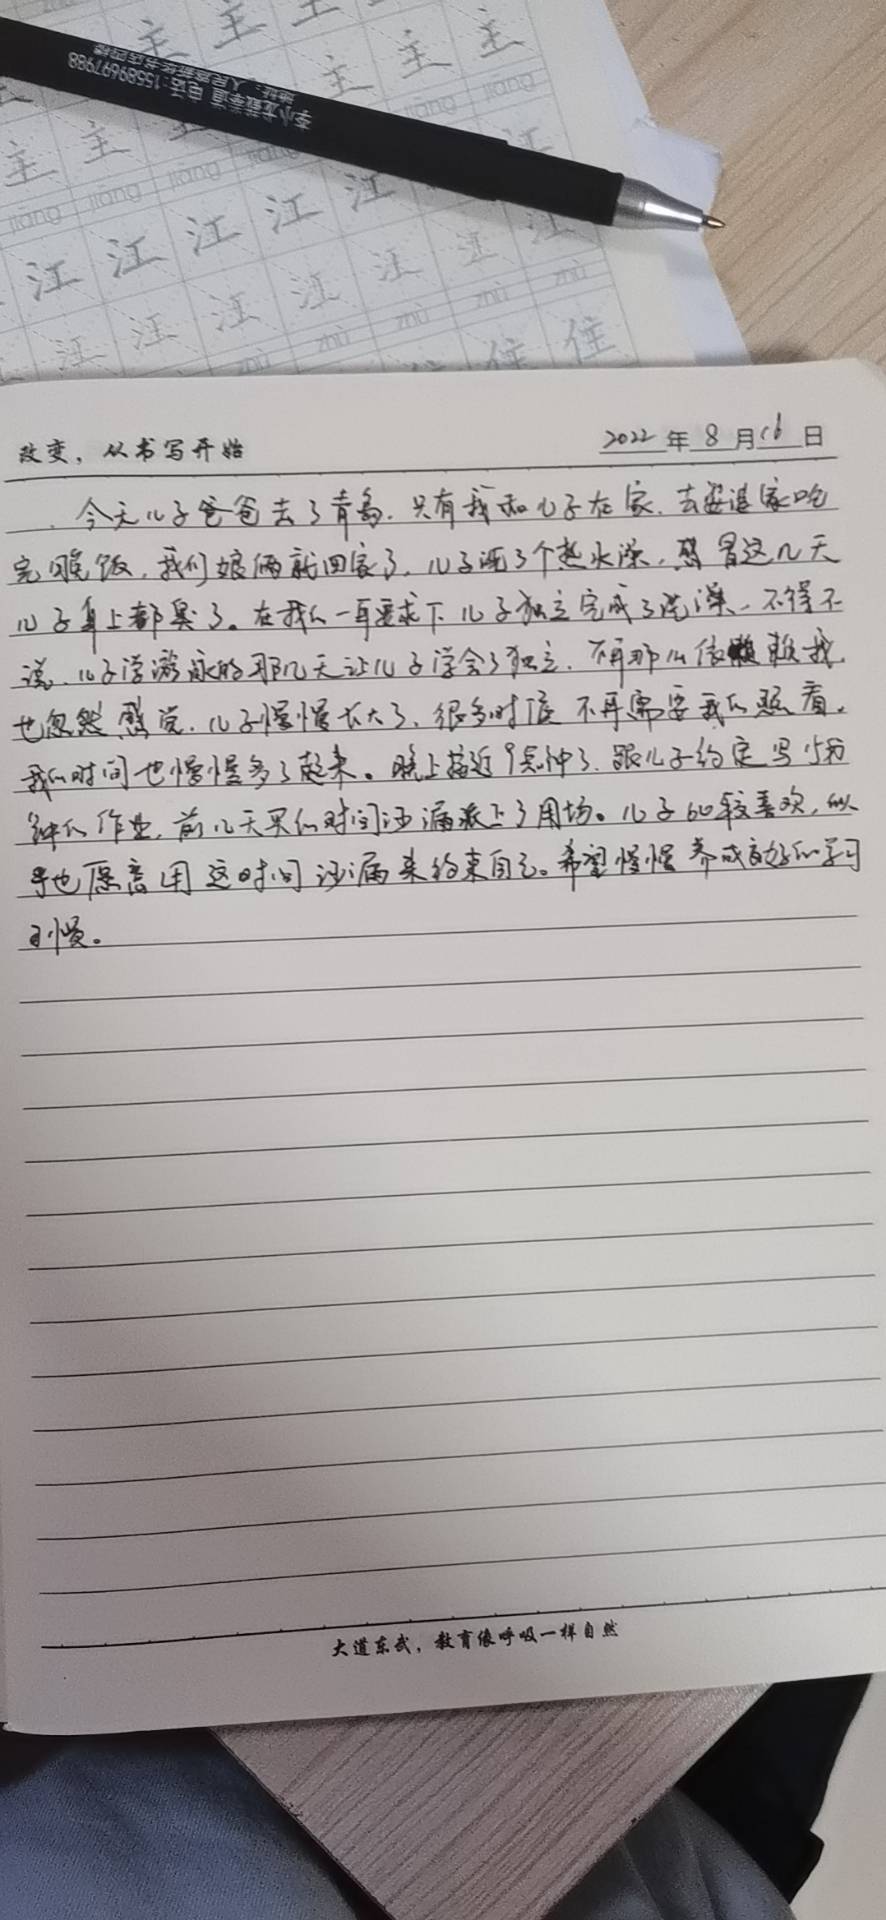 主 主 主 主 主
李小龙截拳道 电话:15589697988
主 主 主 主 主
jiāng jiāng
jiāng jiāng jiāng jiāng
江 江 江 江 江 江
江 江 江 江 江 江 江
zhù zhù zhù zhù zhù
住 住
改变，从书写开始
2022 年 8 月 16 日
今天儿子爸爸去了青岛，只有我和儿子在家，去婆婆家吃
完晚饭，我们娘俩就回家了，儿子洗了个热水澡，感冒这几天
儿子身上都臭了。在我的一再要求下，儿子独立完成了洗澡，不得不
说，儿子学游泳的那几天让儿子学会了独立，不再那么依赖我，
也忽然感觉，儿子慢慢长大了，很多时候不再需要我的照看，
我的时间也慢慢多了起来。晚上接近9点钟了，跟儿子约定写15分
钟的作业，前几天买的时间沙漏派上了用场。儿子比较喜欢，似
乎也愿意用这时间沙漏来约束自己。希望慢慢养成良好的学习
习惯。
大道东武，教育像呼吸一样自然